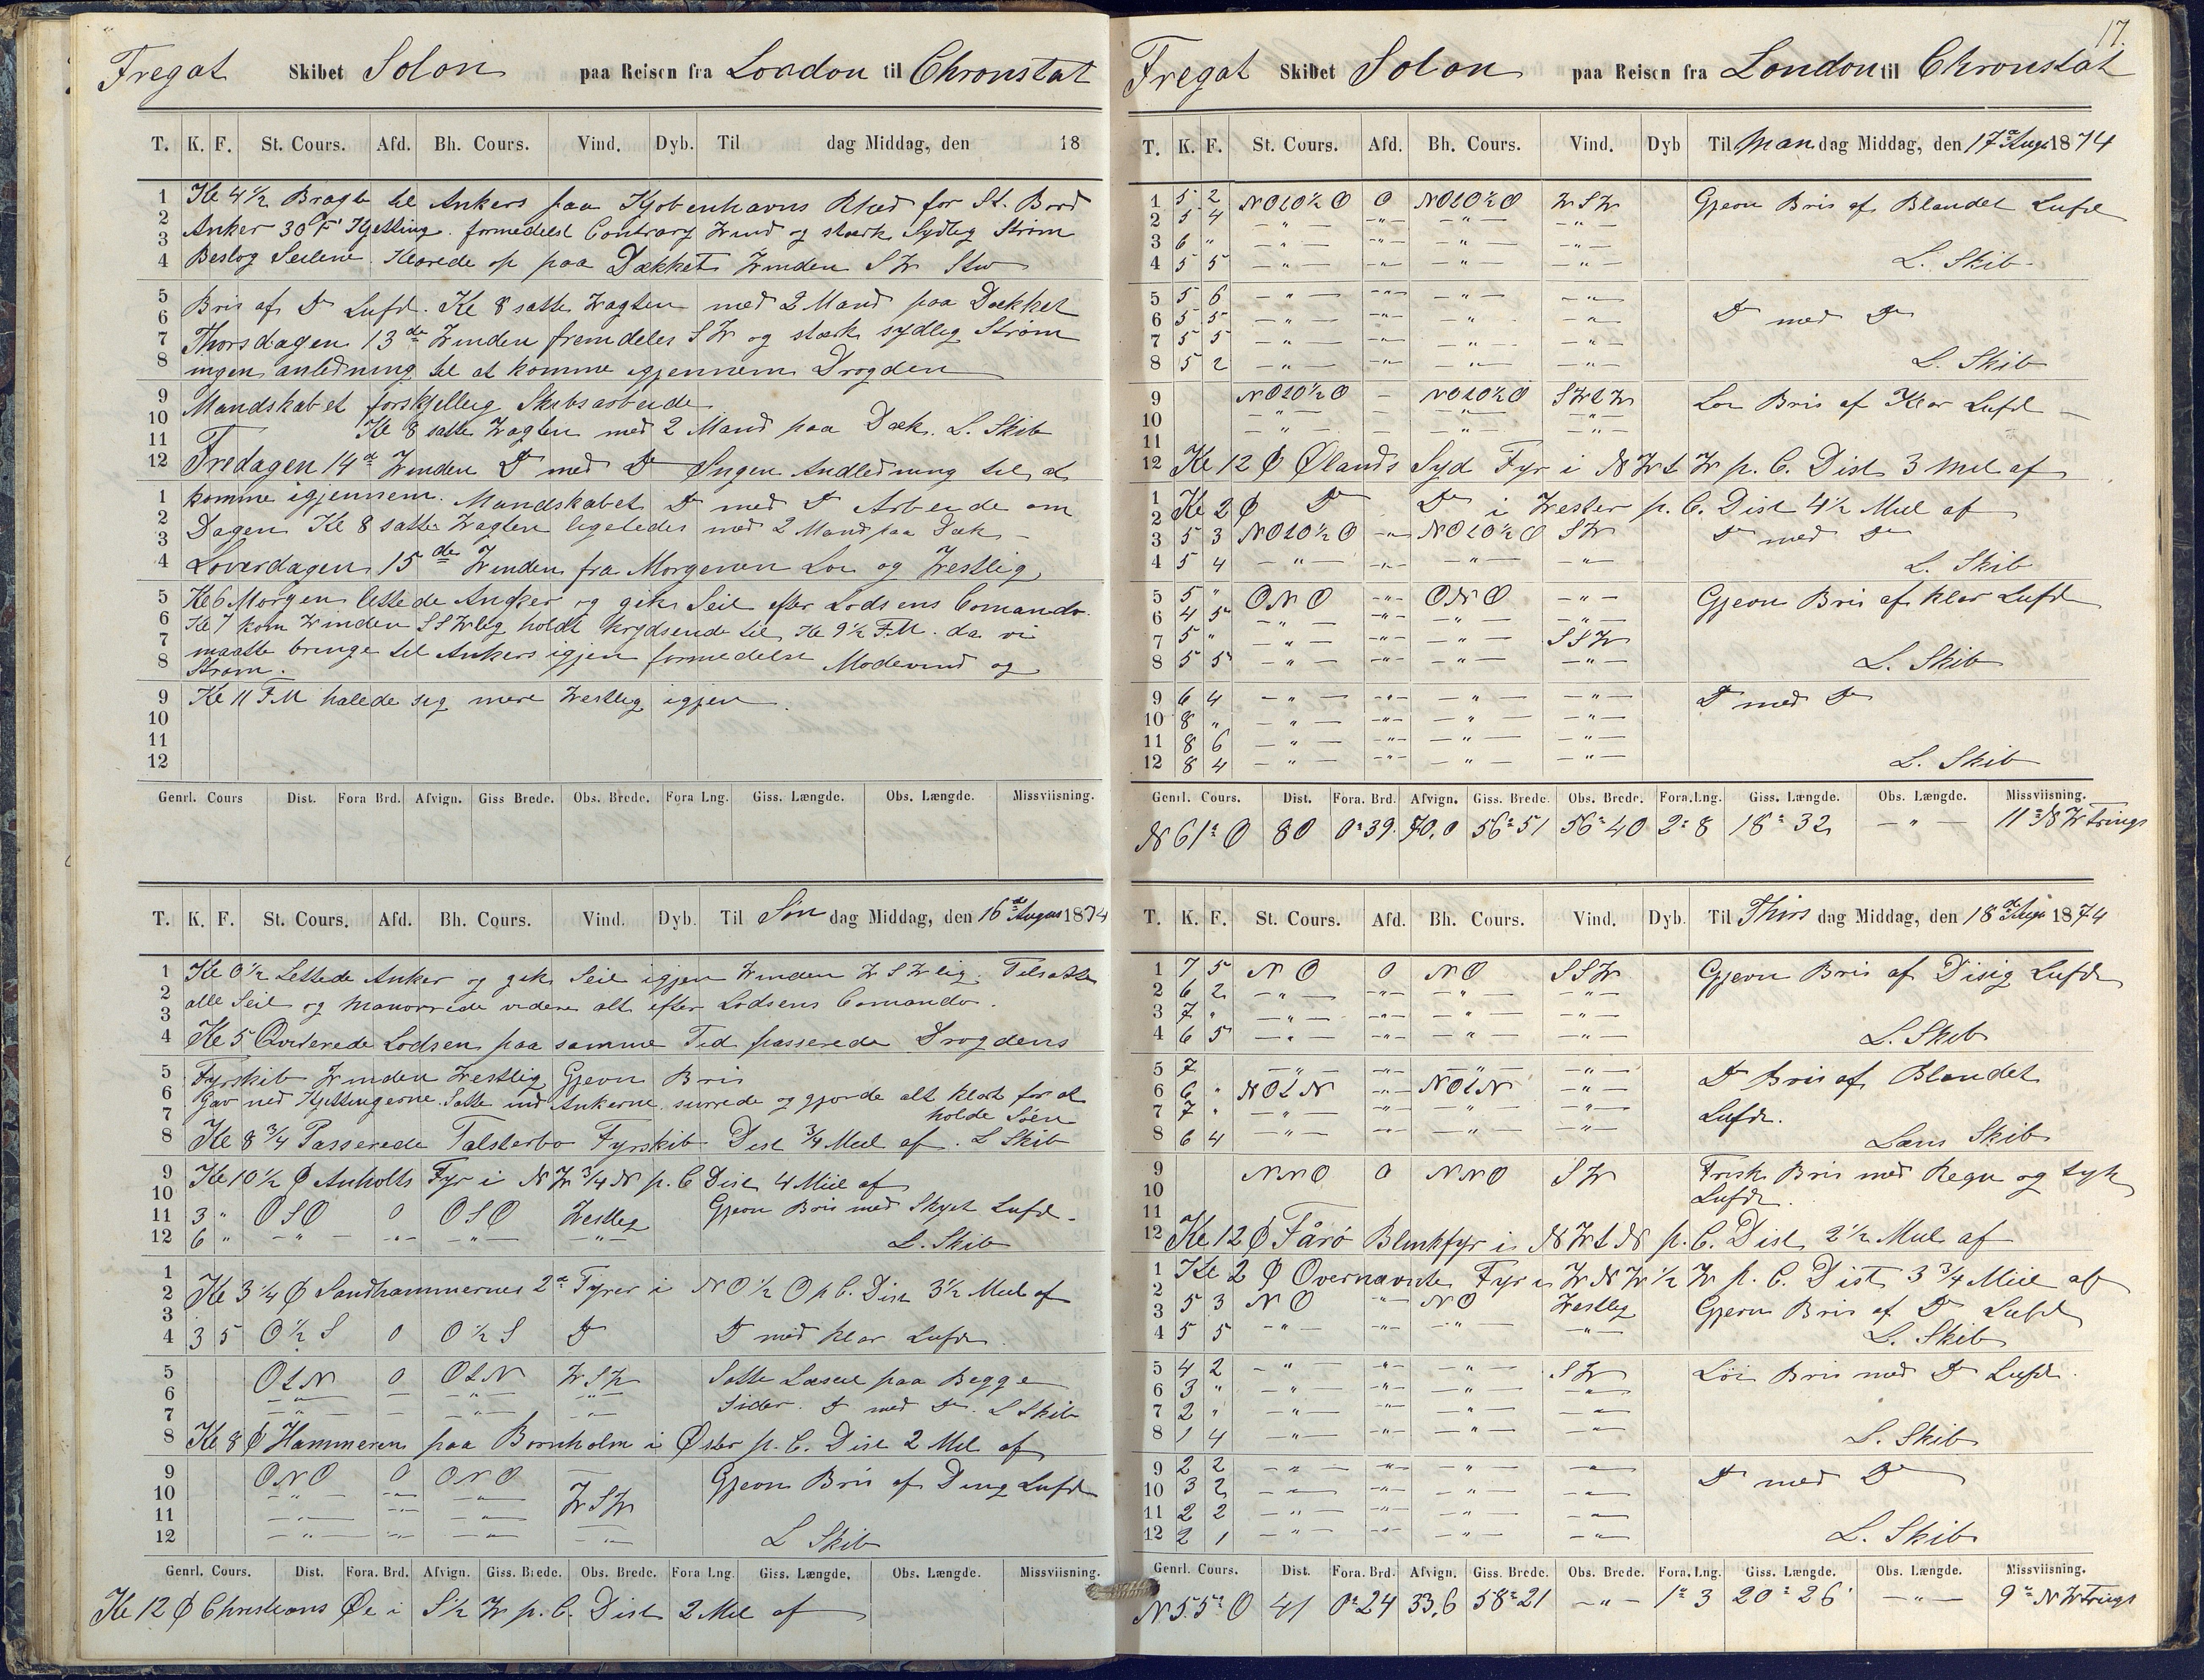 Fregat Skibet Solon paa Reisen fra London til Chronstat
T. K. F. St. Cours. Afd. Bh. Cours. Vind. Dyb. Til dag Middag, den 18
1 Kl 4½ Bragte til Ankers paa Kjobenhavns Rhed for St. Bord
2 Anker 30 F Kjetting formedelst Contrary Wind og stærk Sydlig Strøm
3
4 Beslog Seilene. Klarede op paa Dækket Winden SW Stiv
5 Bris af Do Luft. Kl 8 satte Wagten med 2 Mand paa Dækket
6
7 Thorsdagen 13de Winden fremdeles SW og stærk sydlig Strøm
8 ingen anledning til at komme igjennem Drogden
9 Mandskabet forskjellig Skibsarbeide
10 Kl 8 satte Wagten med 2 Mand paa Dæk. L. Skib
11
12 Fredagen 14de Winden Do med Do Ingen Andledning til at
1 komme igjennem. Mandskabet Do med Do Arbeide om
2
3 Dagen Kl 8 satte Wagten ligeledes med 2 Mand paa Dæk -
4 Loverdagen 15de Winden fra Morgenen Loi og Westlig
5 Kl 6 Morgen lettede Anker og gik Seil efter Lodsens Comando.
6 Kl 7 kom Winden SSWlig holdt krydsende til Kl 9½ F.M. da vi
7 maatte bringe til Ankers igjen formedelst Modevind og
8 Strøm.
9 Kl 11 FM halede sig mere Westlig igjen.
10
11
12
Genrl. Cours Dist. Fora Brd. Afvign. Giss Brede. Obs. Brede. Fora Lng. Giss. Længde. Obs. Længde. Missviisning.
T. K. F. St. Cours. Afd. Bh. Cours. Vind. Dyb. Til Søn dag Middag, den 16de August 1874
1 Kl 0½ Lettede Anker og gik Seil igjen Winden WSWlig. Tilsatte
2 alle Seil og Manovrede videre alt efter Lodsens Comando.
3
4 Kl 5 Qviterede Lodsen paa samme Tid passerede Drogdens
5 Fyrskib Winden Westlig Gjevn Bris
6 Gav ned Kjettingerne. Satte ind Ankerne surrede og gjorde alt klart for at
7 holde Søen
8 Kl 8¾ Passerede Falsterbo Fyrskib Dist ¾ Miil af. L Skib
9 Kl 10½ Ф Anholts Fyr i NW¾N p. C Dist 4 Miil af
10
11 3 " OSO 0 OSO Westlig Gjevn Bris med Skyet Luft.
12 6 " — " — -"- — " — — " — L. Skib
1
2 Kl 3¼ Ф Sandhammernes 2de Fyrer i NO½O p C. Dist 3½ Miil af
3
4 3 5 O½S 0 O½S Do Do med klar Luft.
5 OtN 0 OtN WSW Satte Læseil paa Begge
6 — " — — — " — — " — Sider. Do med Do. L Skib
7 — " — — — " — — " —
8 Kl 8 Ф Hammeren paa Bornholm i Øster p. C. Dist 2 Mil af
9 ONO 0 ONO — Gjevn Bris af Do Luft
10 — " — -"- — " — WSW
11 — " — -"- — " —
12 — " — -"- — " — — " — L Skib
Genrl. Cours. Dist. Fora. Brd. Afvign. Giss. Brede. Obs. Brede. Fora Lng. Giss. Længde. Obs. Længde. Missviisning.
Kl 12 Ф Christians Øe i S½W p. C. Dist 2 Mil af
17.
Fregat Skibet Solon paa Reisen fra London til Chronstat
T. K. F. St. Cours. Afd. Bh. Cours. Vind. Dyb Til Man dag Middag, den 17de Aug 1874
1 5 2 NOtO½O 0 NOtO½O WSW Gjevn Bris af Blandet Luft
2 5 4 — " — -"- — " — — " —
3 6 " — " — -"- — " — — " —
4 5 5 — " — -"- — " — — " — L. Skib
5 5 6 — " — -"- — " — — " —
6 5 5 — " — -"- — " — — " — Do med Do
7 5 5 — " — -"- — " — — " —
8 5 2 — " — -"- — " — — " — L. Skib
9 NOtO½O - NOtO½O SWtW Loi Bris af Klar Luft —
10 — " — — — " — — " —
11 — " — — — " — — " —
12 Kl 12 Ф Ølands Syd Fyr i NWtW p. C. Dist 3 Mil af
1 Kl 2 Ф Do Do i Wester p. C. Dist 4½ Miil af
2
3 5 3 NOtO½O -"- NOtO½O SW Do med Do
4 5 4 — " — -"- — " — — " — L. Skib
5 5 " ONO -"- ONO — " — Gjevn Bris af klar Luft
6 4 5 — " — -"- — " — — " —
7 5 " — " — -"- — " — SSW
8 5 5 — " — -"- — " — — " — L. Skib
9 6 4 — " — -"- — " — — " — Do med Do
10 8 " — " — -"- — " — — " —
11 8 6 — " — -"- — " — — " —
12 8 4 — " — -"- — " — — " — L. Skib
Genrl. Cours. Dist. Fora. Brd. Afvign. Giss. Brede. Obs. Brede. Fora. Lng. Giss. Længde. Obs. Længde. Missviisning.
N 61° O 80 0° 39. 70,0 56° 51 56° 40 2° 8 18° 32 — " — 11° NWtrings
T. K. F. St. Cours. Afd. Bh. Cours. Vind. Dyb. Til Thirs dag Middag, den 18de Aug 1874
1 7 5 NO 0 NO SSW Gjevn Bris af Disig Luft
2 6 2 — " — -"- — " — — " —
3 7 " — " — -"- — " — — " —
4 6 5 — " — -"- — " — — " — L. Skib
5 7 — " — -"- — " — — " — Do Bris af Blandet
6 6 " NOtN -"- NOtN — " — Luft.
7 7 " — " — -"- — " — — " —
8 6 4 — " — -"- — " — — " — Læns Skib
9 NNO 0 NNO SW Frisk Bris med Regn og tyk
10 Luft.
11
12 Kl 12 Ф Fårø Blinkfyr i NWtN p. C. Dist 2½ Miil af
1 Kl 2 Ф Overnævnte Fyr i WNW½W p. C. Dist 3¾ Miil af
2
3 5 3 NO " NO Westlig Gjevn Bris af Do Luft
4 5 5 — " — -"- — " — — " — L. Skib
5 4 2 — " — -"- — " — SW Löi Bris med Do Luft.
6 3 " — " — -"- — " — — " —
7 2 " — " — -"- — " — — " —
8 1 4 — " — -"- — " — — " — L. Skib
9 2 2 — " — -"- — " — — " — Do med Do
10 3 2 — " — -"- — " — — " —
11 2 2 — " — -"- — " — — " —
12 2 1 — " — -"- — " — — " — L. Skib
Genrl. Cours. Dist. Fora. Brd. Afvign. Giss. Brede. Obs. Brede. Fora. Lng. Giss. Længde. Obs. Længde. Missviisning.
N 55° O 41 0° 24 33,6 58° 21 — " — 1° 3 20° 26' — " — 9° NWtrings